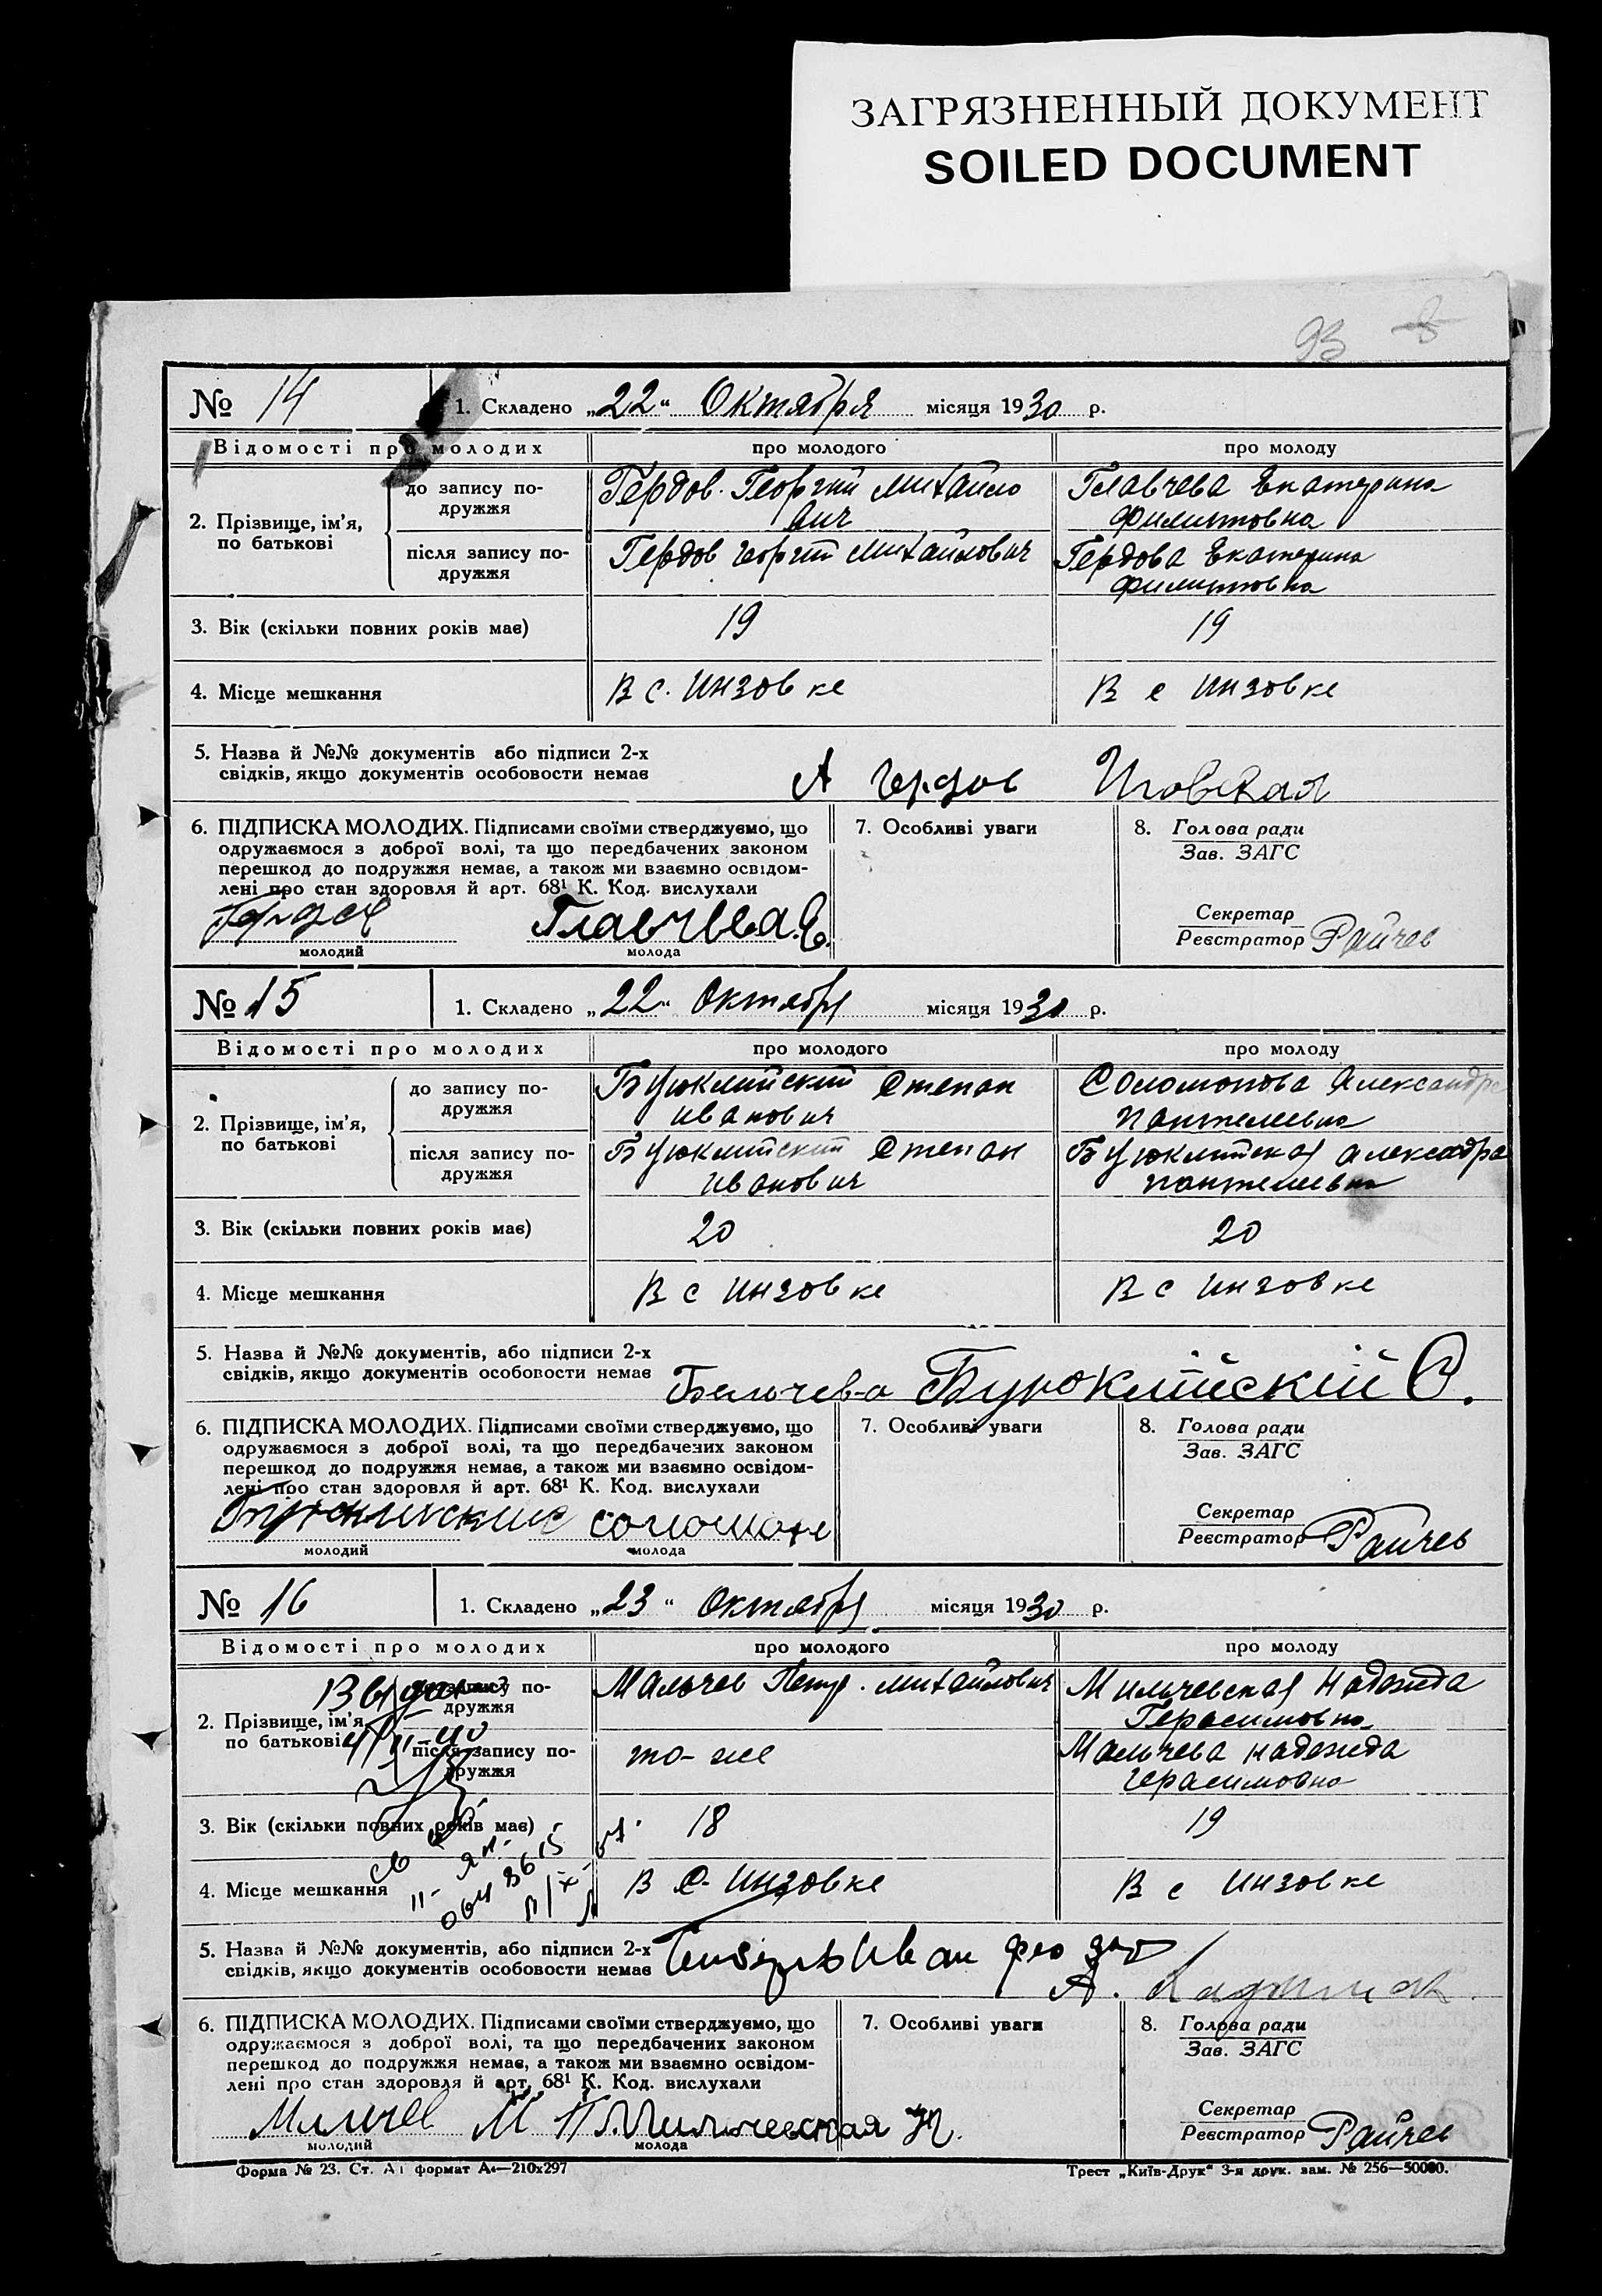 ЗАГРЯЗНЕННЫЙ ДОКУМЕНТ
SOILED DOCUMENT
93 8
№ 14 1. Складено „22“ Октября місяця 1930 р.
Відомості про молодих про молодого про молоду
2. Прізвище, ім'я, по батькові
до запису подружжя Гердов Георгий Михайло Главчева Екатерина
вич Филиповна
після запису по- Гердов Георгий Михайлович Гердова Екатерина
дружжя Филиповна
3. Вік (скільки повних років має) 19 19
4. Місце мешкання В с. Инзовке В с Инзовке
5. Назва й №№ документів або підписи 2-х
свідків, якщо документів особовости немає А Гердов
6. ПІДПИСКА МОЛОДИХ. Підписами своїми стверджуємо, що 7. Особливі уваги 8. Голова ради
одружаємося з доброї волі, та що передбачених законом Зав. ЗАГС
перешкод до подружжя немає, а також ми взаємно освідом-
лені про стан здоровля й арт. 68¹ К. Код. вислухали
Секретар
Гердов Главчева Е. Реєстратор Райчев
молодий молода
№ 15 1. Складено „22“ Октября місяця 1930 р.
Відомості про молодих про молодого про молоду
до запису по- Буюклийский Степан Соломонова Александра
дружжя Иванович Пантелевна
2. Прізвище, ім'я,
по батькові
після запису по- Буюклийский Степан Буюклийская Александра
дружжя Иванович Пантелевна
3. Вік (скільки повних років має) 20 20
4. Місце мешкання В с Инзовке В с Инзовке
5. Назва й №№ документів, або підписи 2-х
свідків, якщо документів особовости немає Бельчева Буюклійскій С.
6. ПІДПИСКА МОЛОДИХ. Підписами своїми стверджуємо, що 7. Особливі уваги 8. Голова ради
одружаємося з доброї волі, та що передбачених законом Зав. ЗАГС
перешкод до подружжя немає, а також ми взаємно освідом-
лені про стан здоровля й арт. 68¹ К. Код. вислухали
Секретар
Реєстратор Райчев
молодий молода
№ 16 1. Складено „23“ Октября місяця 1930 р.
Відомості про молодих про молодого про молоду
до запису по- Мальчев Петр. Михайлович Мильчевская Надежда
дружжя Герасимовна
2. Прізвище, ім'я
по батькові
після запису по- то-же Мальчева Надежда
дружжя Герасимовна
3. Вік (скільки повних років має) 18 19
4. Місце мешкання В с. Инзовке В с Инзовке
5. Назва й №№ документів, або підписи 2-х
свідків, якщо документів особовости немає Иван А.
6. ПІДПИСКА МОЛОДИХ. Підписами своїми стверджуємо, що 7. Особливі уваги 8. Голова ради
одружаємося з доброї волі, та що передбачених законом Зав. ЗАГС
перешкод до подружжя немає, а також ми взаємно освідом-
лені про стан здоровля й арт. 68¹ К. Код. вислухали
Секретар
Мильчевская Н. Реєстратор Райчев
молодий молода
Форма № 23. Ст. А1 формат А4—210х297 Трест „Київ-Друк“ 3-я друк. зам. № 256—50000.